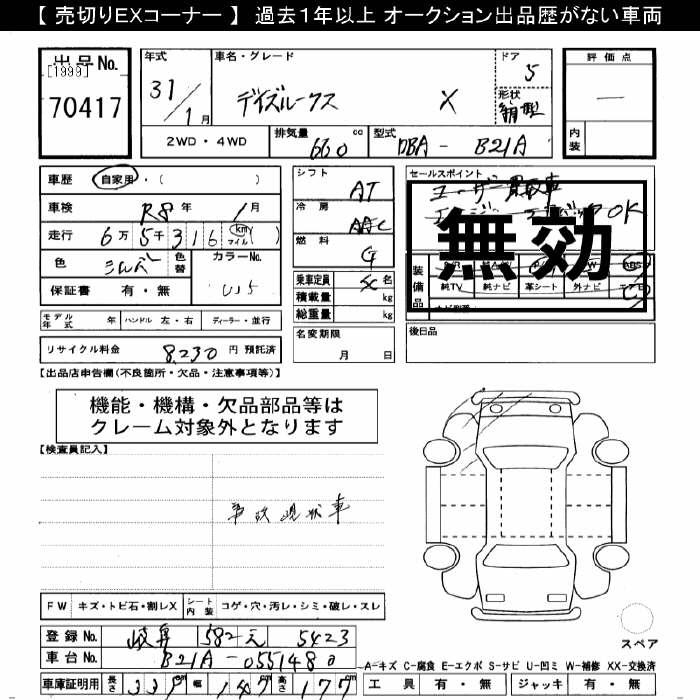 【 売切りEXコーナー 】 過去1年以上 オークション出品歴がない車両
出品No.
[1999]
70417
年式
31/1月
車名・グレード
デイズルークス X
ドア
5
形状
評価点
—
内装
2WD・4WD
排気量 660 cc
型式 DBA - B21A
車歴 自家用・( )
車検 R8年 1月
走行 6万5千316 km マイル ( )
色
色替
カラーNo.
保証書 有・無
シフト AT
冷房 AAC
燃料 G
乗車定員
積載量 kg
総重量 kg
セールスポイント
ユーザー買取車
エンジン OK
無効
装備品
純TV 純ナビ 革シート 外ナビ エアB
モデル年式 年 ハンドル 左・右 ディーラー・並行
名変期限
月 日
後日品
リサイクル料金 8,230 円 預託済
【出品店申告欄(不良箇所・欠品・注意事項等)】
機能・機構・欠品部品等は
クレーム対象外となります
【検査員記入】
事故現状車
FW キズ・トビ石・割レX シート内装 コゲ・穴・汚レ・シミ・破レ・スレ
スペア
登録No. 岐阜 582 え 5423
車台No. B21A-0551480
A-キズ C-腐食 E-エクボ S-サビ U-凹ミ W-補修 XX-交換済
車庫証明用 長さ 339cm 幅 147cm 高さ 177cm
工具 有・無 ジャッキ 有・無